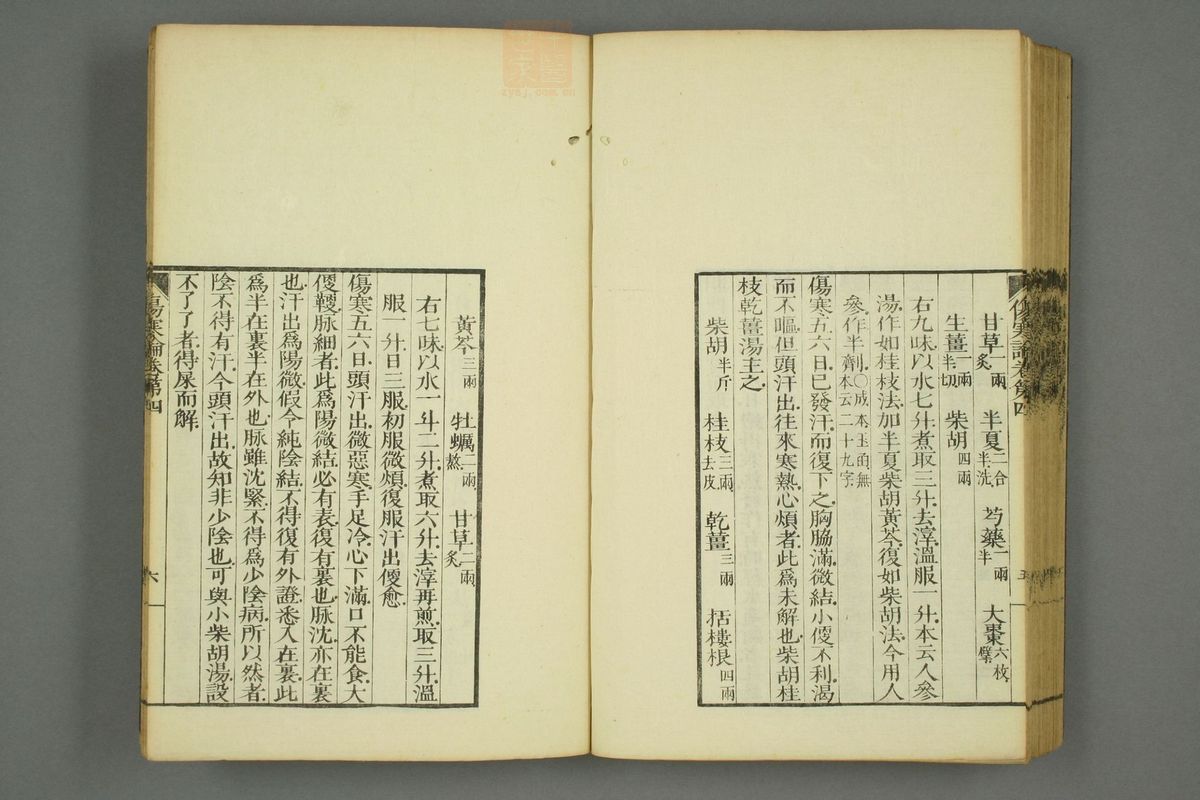 傷寒論卷第四
五
甘草一兩炙 半夏二合半洗 芍藥一兩半 大棗六枚擘
生薑一兩半切 柴胡四兩
右九味以水七升煮取三升去滓溫服一升本云人參
湯作如桂枝法加半夏柴胡黃芩復如柴胡法今用人
參作半劑○成本玉函無本云二十九字
傷寒五六日已發汗而復下之胸脇滿微結小便不利渴
而不嘔但頭汗出往來寒熱心煩者此爲未解也柴胡桂
枝乾薑湯主之
柴胡半斤 桂枝三兩去皮 乾薑三兩 括樓根四兩
黃芩三兩 牡蠣二兩熬 甘草二兩炙
右七味以水一斗二升煮取六升去滓再煎取三升溫
服一升日三服初服微煩復服汗出便愈
傷寒五六日頭汗出微惡寒手足冷心下滿口不能食大
便鞕脉細者此爲陽微結必有表復有裏也脉沈亦在裏
也汗出爲陽微假令純陰結不得復有外證悉入在裏此
爲半在裏半在外也脉雖沈緊不得爲少陰病所以然者
陰不得有汗今頭汗出故知非少陰也可與小柴胡湯設
不了了者得屎而解
傷寒論卷第四
六
zysj.com.cn